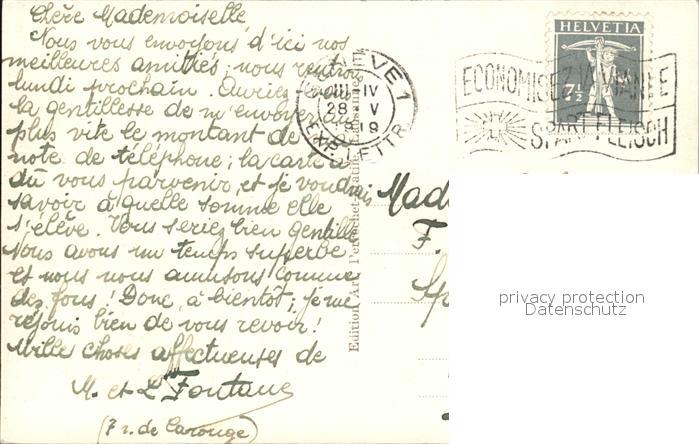 Chère Mademoiselle
Nous vous envoyons d'ici nos
meilleures amitiés; nous rentrons
lundi prochain. Auriez-vous
la gentillesse de m'envoyer au
plus vite le montant de
note de téléphone; la carte a
dû vous parvenir, et je voudrais
savoir à quelle somme elle
s'élève. Vous seriez bien gentille
Nous avons un temps superbe
et nous nous amusons comme
des fous! Donc, à bientôt; je me
réjouis bien de vous revoir!
Mille choses affectueuses de
M. et L. Fontane
(7 r. de Carouge)
Edition Art.
HELVETIA
7½
ECONOMISEZ LA VIANDE
SPART FLEISCH
GENÈVE 1
III-IV
28 V
1919
EXP. LETTR.
Mad
F.
Sp
privacy protection
Datenschutz